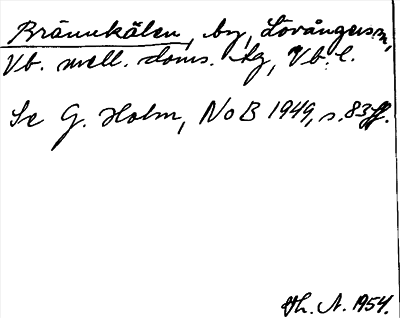 Brännkälen, by, Lövångers sn,
Vb. mell. doms. tg, Vb. l.
Se G. Holm, NoB 1949, s. 83 ff.
Th. A. 1954.